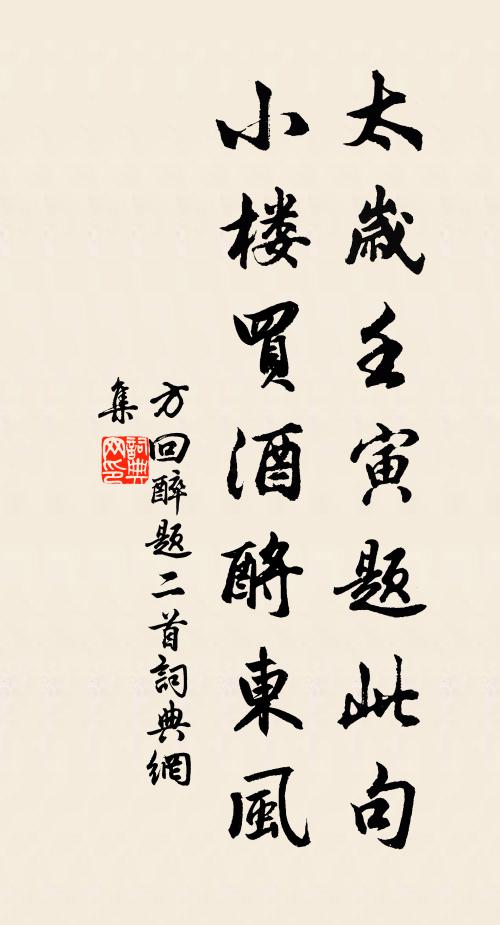 太歲壬寅題此句
小楼買酒酹東風
方回醉题二首詞典網
集
詞典网印